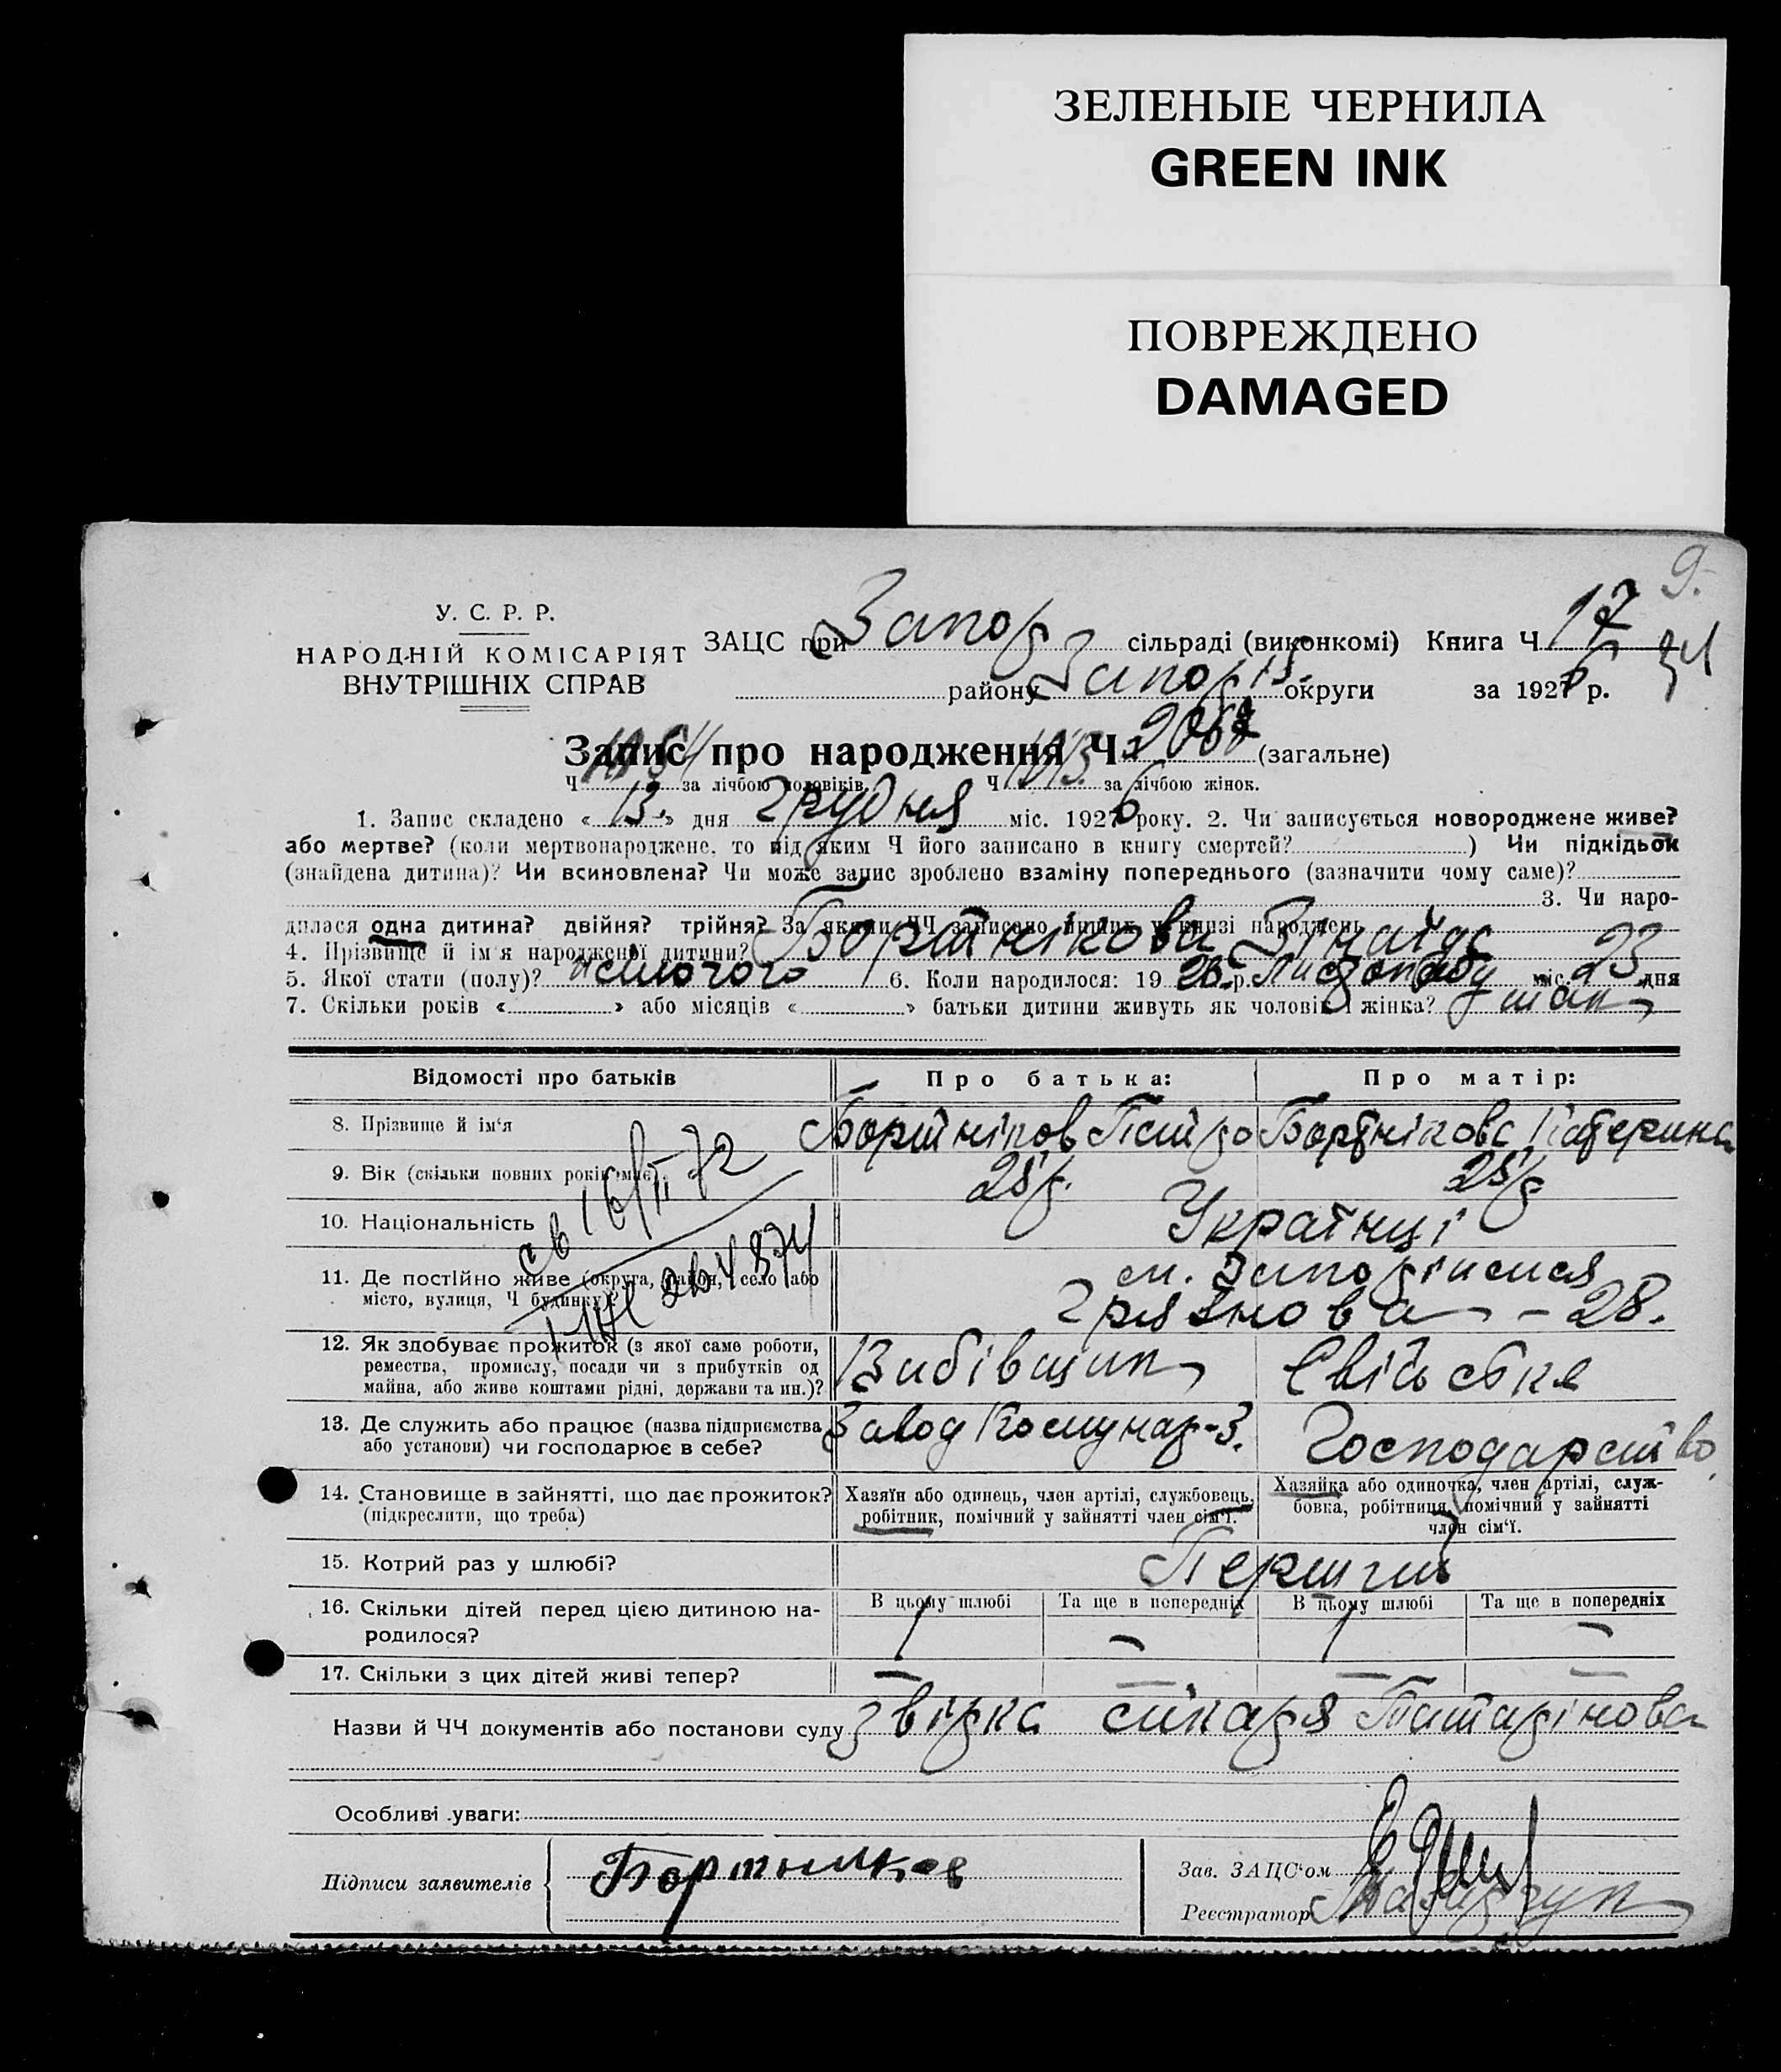 ЗЕЛЕНЫЕ ЧЕРНИЛА
GREEN INK
ПОВРЕЖДЕНО
DAMAGED
9.
У. С. Р. Р.
НАРОДНІЙ КОМІСАРІЯТ
ВНУТРІШНІХ СПРАВ
ЗАЦС при Запор сільраді (виконкомі) Книга Ч 17
району Запоріз. округи за 1926 р.
34
Запис про народження Ч 2067 (загальне)
Ч 1054 за лічбою чоловіків. Ч 1013 за лічбою жінок.
1. Запис складено « 13 » дня Грудня міс. 1926 року. 2. Чи записується новороджене живе?
або мертве? (коли мертвонароджене, то під яким Ч його записано в книгу смертей? ) Чи підкідьок
(знайдена дитина)? Чи всиновлена? Чи може запис зроблено взаміну попереднього (зазначити чому саме)?
3. Чи наро-
дилася одна дитина? двійня? трійня? За якими ЧЧ записано инших у книзі народжень
4. Прізвище й ім'я народженої дитини? Бортнікова Зінаїда
5. Якої стати (полу)? жіночого 6. Коли народилося: 19 26 р. Листопаду міс. 23 дня
7. Скільки років « » або місяців « » батьки дитини живуть як чоловік і жінка?
Відомості про батьків Про батька: Про матір:
8. Прізвище й ім'я Бортніков Петро Бортнікова Катерина
9. Вік (скільки повних років має) 28 р. 28 р
10. Національність Українці
св 16/II-72
11. Де постійно живе (округа, район, село або м. Запоріжжя
місто, вулиця, Ч будинку)? Грязнова - 28.
12. Як здобуває прожиток (з якої саме роботи,
ремества, промислу, посади чи з прибутків од
майна, або живе коштами рідні, держави та ин.)? Вибівщик Свійське
13. Де служить або працює (назва підприємства Завод Комунар-З.
або установи) чи господарює в себе? Господарство
14. Становище в зайнятті, що дає прожиток?
(підкреслити, що треба)
Хазяїн або одинець, член артілі, службовець,
робітник, помічний у зайнятті член сім'ї.
Хазяйка або одиночка, член артілі, служ-
бовка, робітниця, помічний у зайнятті
член сім'ї.
15. Котрий раз у шлюбі? Перший
16. Скільки дітей перед цією дитиною на-
родилося?
В цьому шлюбі Та ще в попередніх В цьому шлюбі Та ще в попередніх
1 — 1 —
17. Скільки з цих дітей живі тепер? — — — —
Назви й ЧЧ документів або постанови суду
Особливі уваги:
Підписи заявителів Бортников
Зав. ЗАЦС'ом
Реєстратор